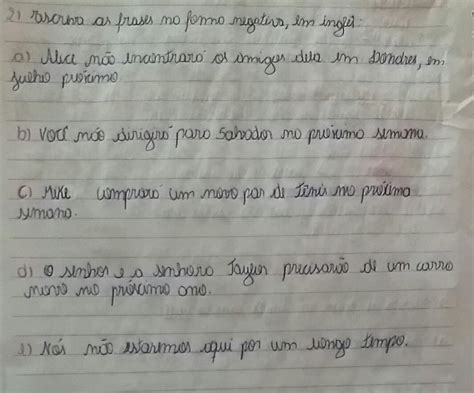 2) Escreva as frases na forma negativa, em inglês:
a) Alice não encontrará os amigos dela em Londres, em
julho próximo.
b) Você não dirigirá para Salvador na próxima semana.
c) Mike comprará um novo par de tênis na próxima
semana.
d) O senhor e a senhora Tayler precisarão de um carro
novo no próximo ano.
e) Nós não estaremos aqui por um longo tempo.